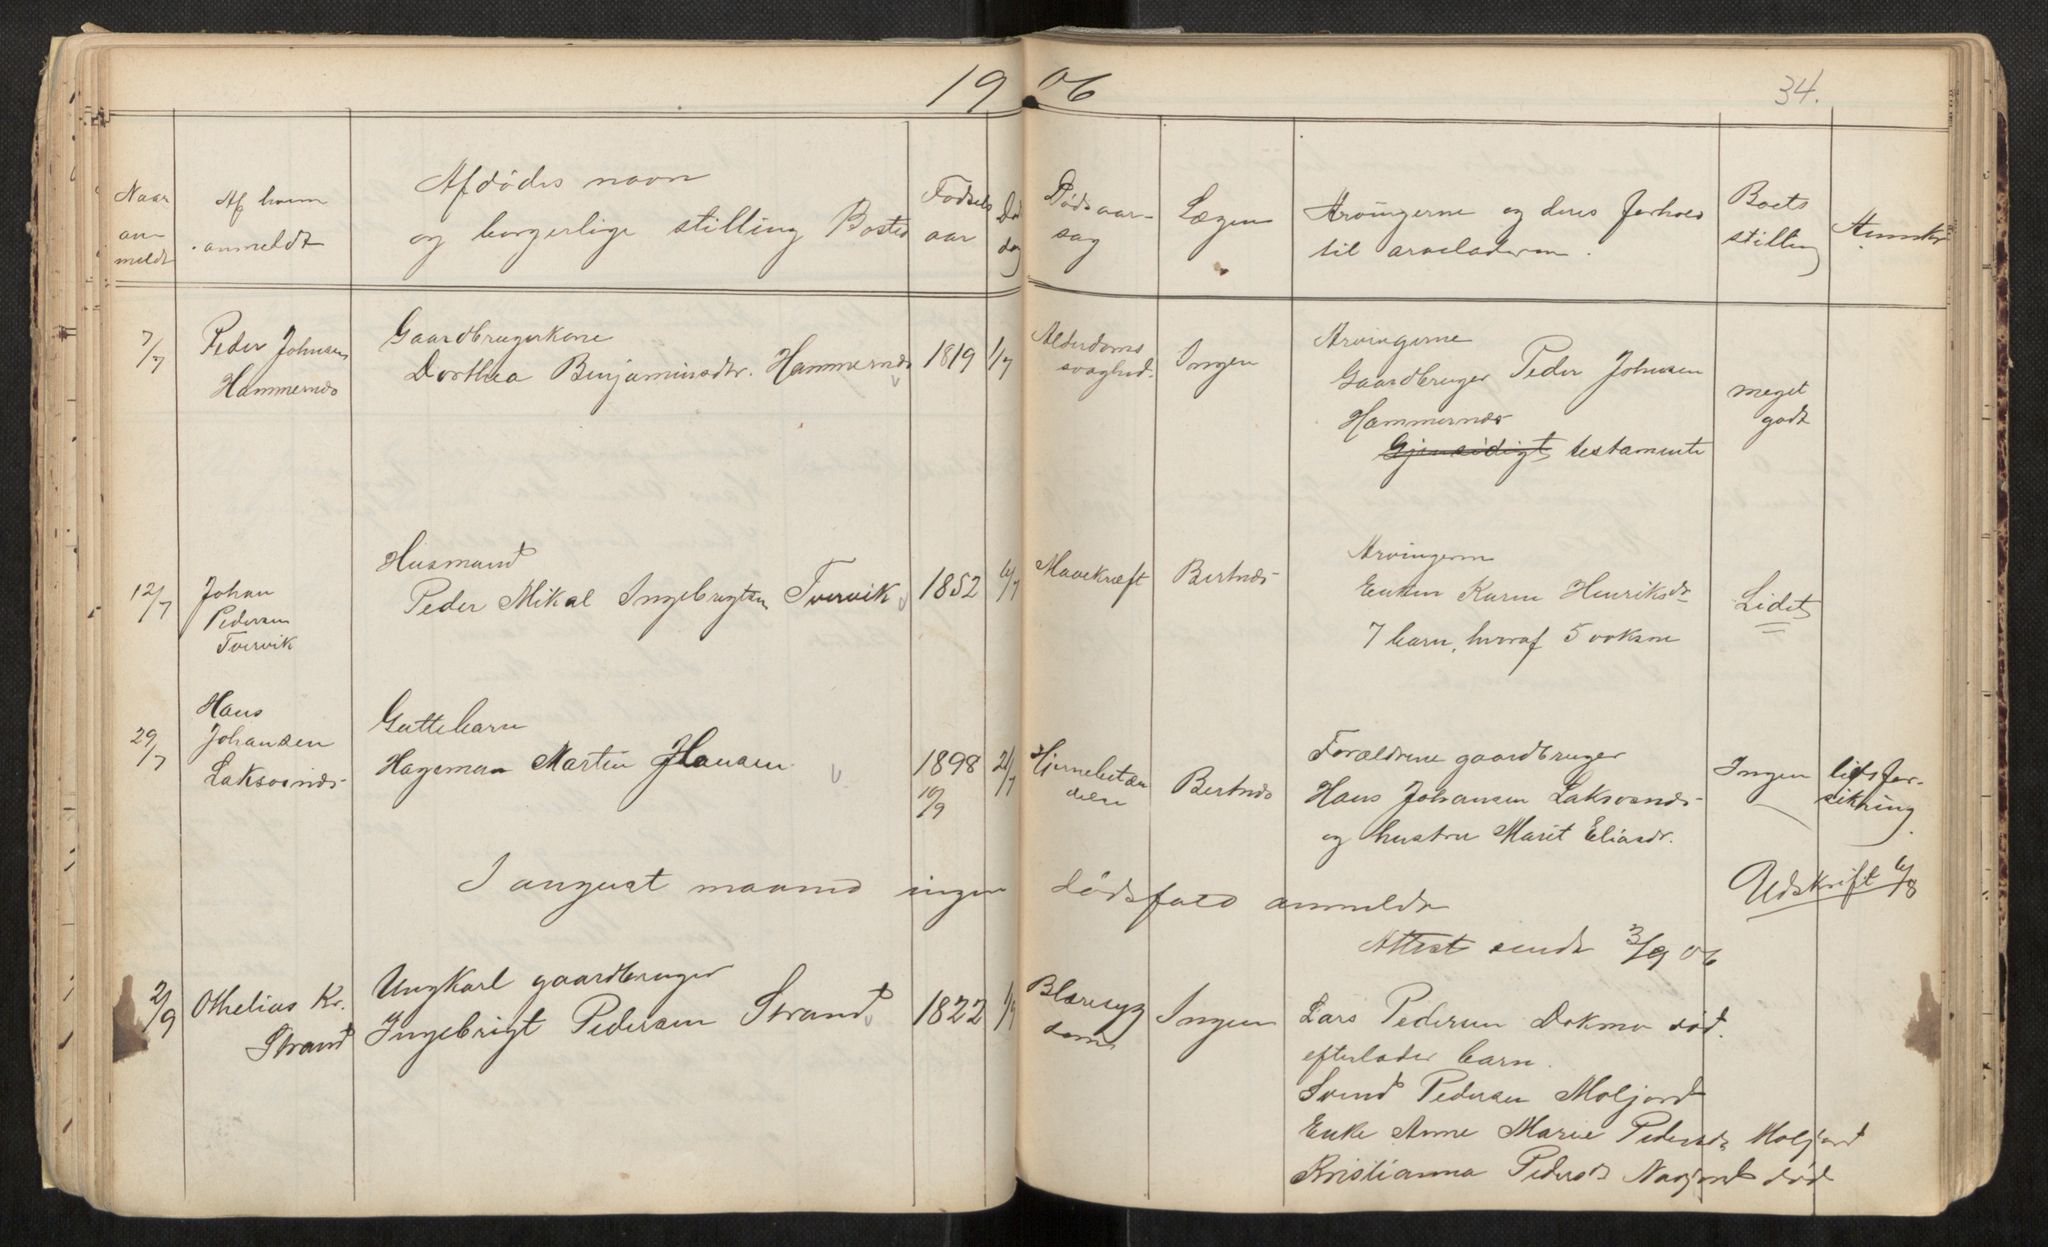 1906
34.
Naar
an-
meldt
Af hvem
anmeldt
Afdødes navn
og borgerlige stilling Bosted
Fødsels
aar
Død
dag
Dødsaar-
sag
Lægen
Arvingerne og deres forhold
til arveladeren.
Boets
stilling
Anmerk
7/7
Peder Johnsen
Hammernæs
Gaardbrugerkone
Dorthea Benjaminsdtr. Hammernæs
1819
1/7
Alderdoms
svaghed.
Ingen
Arvingerne
Gaardbruger Peder Johnsen
Hammernæs
Gjensidigt testamente
meget
godt
12/7
Johan
Pedersen
Tvervik
Husmand
Peder Mikal Ingebrigtsen Tvervik
1852
6/7
Mavekræft
Bertnæs
Arvingerne
Enken Karen Henriksdr
7 barn, hvoraf 5 voksne
Lidet
29/7
Hans
Johansen
Laksosnæs
Guttebarn
Hageman Martin Hansen
1898
10/9
21/7
Hjernebetæn
delse
Bertnæs
Forældrene gaardbruger
Hans Johansen Laksosnæs
og hustru Marit Eliasdr.
Ingen livsfor-
sikring
I august maaned ingen dødsfald anmeldt
Udskrift 6/8
Attest sendt 3/9 06
2/9
Othelius Kr.
Strand
Ungkarl gaardbruger
Ingebrigt Pedersen Strand
1822
1/9
Blæresyg
dom
Ingen
Lars Pedersen Dokmo død.
efterlader barn.
Svend Pedersen Moljord
Enke Anne Marie Pedersdr Moljord
Kristianna Pedersdr død